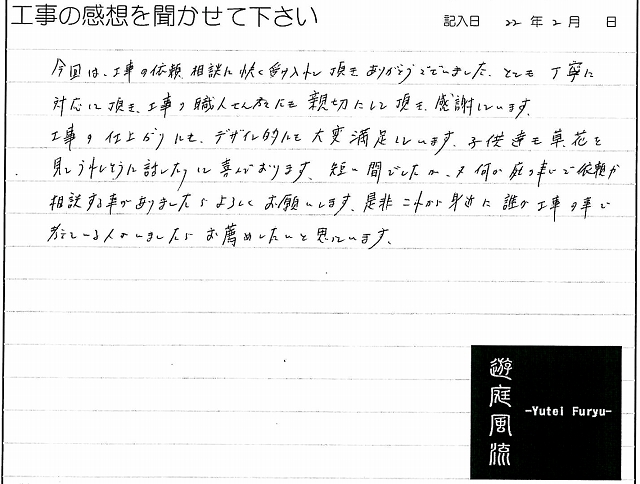 工事の感想を聞かせて下さい
記入日 22年2月 日
今回は、工事の依頼、相談に快く受け入れて頂きありがとうございました。とても丁寧に
対応して頂き、工事の職人さん達にも親切にして頂き、感謝しています。
工事の仕上がりにも、デザイン的にも大変満足しています。子供達も草花を
見てうれしそうに話したりと喜んでおります。短い間でしたが、又何か庭の事で依頼や
相談する事がありましたらよろしくお願いします。是非これから身近に誰か工事の事で
考えている人がいましたらお薦めしたいと思っています。
遊庭風流
-Yutei Furyu-